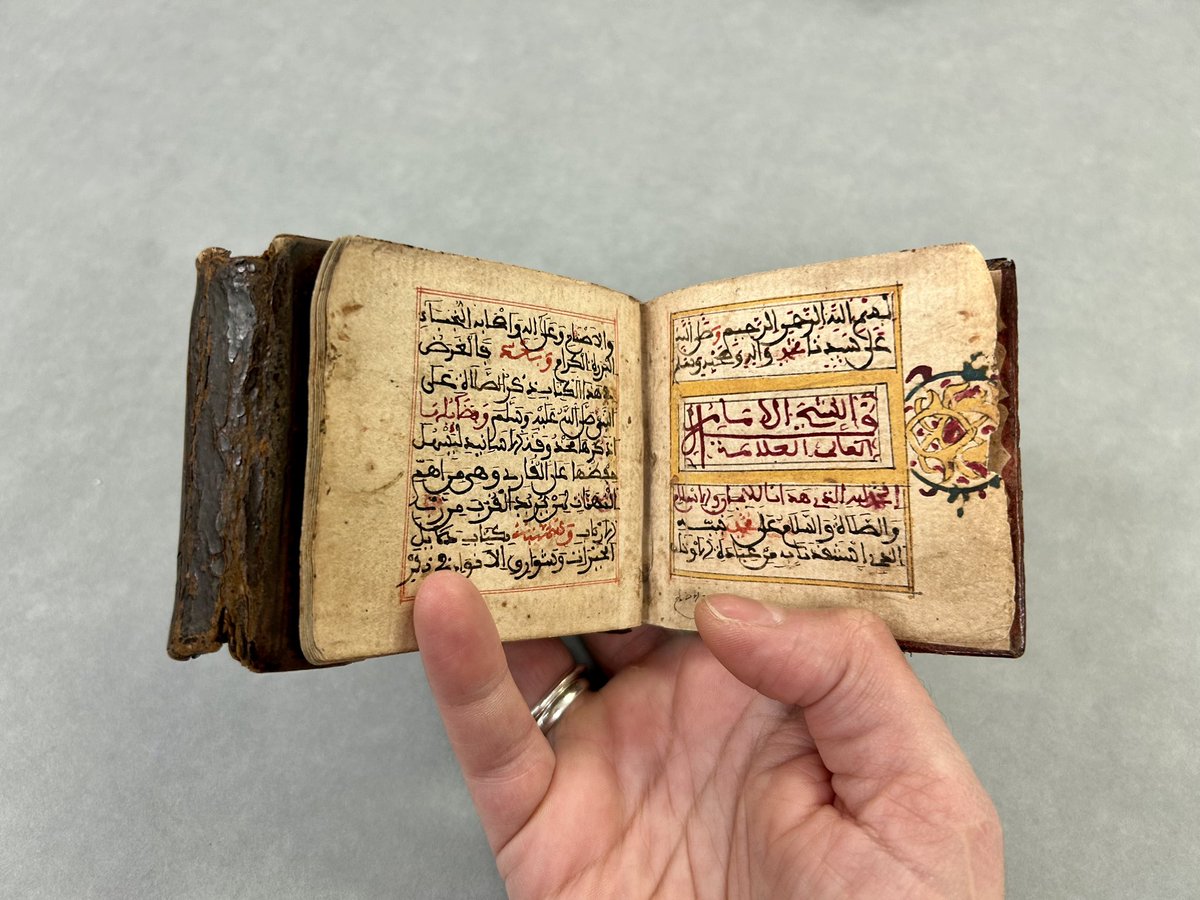 بسم الله الرحمن الرحيم وصلى الله
على سيدنا محمد واله وصحبه وسلم
قال الشيخ الامام
العالم العلامة
الحمد لله الذي هدانا للايمان والاسلام
والصلاة والسلام على محمد نبيه
الذي استنقذنا به من عبادة الاوثان
والاصنام وعلى اله واصحابه النجباء
البررة الكرام فالغرض
في هذا الكتاب ذكر الصلاة على
النبي صلى الله عليه وسلم وفضائلها
نذكرها محذوفة الاسانيد ليسهل
حفظها على القارئ وهي من اهم
المهمات لمن يريد القرب من رب
الارباب وسميته كتاب دلايل
الخيرات وشوارق الانوار في ذكر